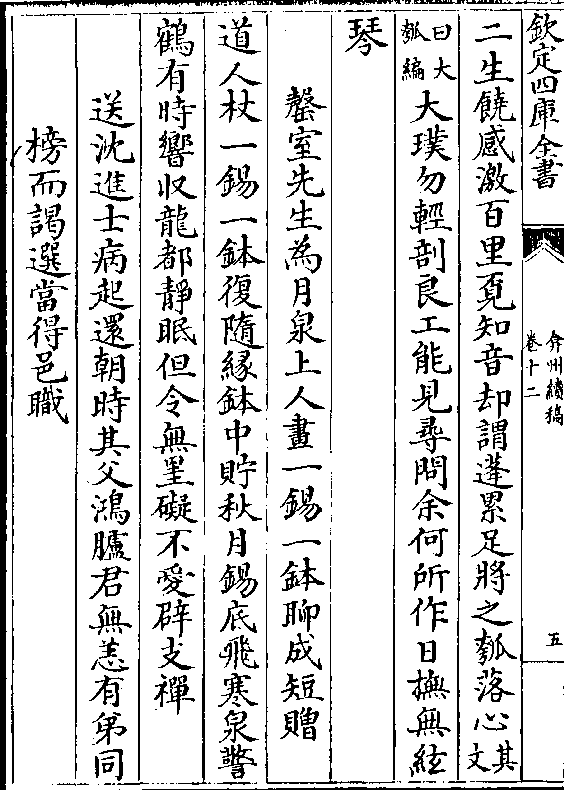 欽定四庫全書
弇州續稿
卷十二
五
二生饒感激百里覓知音却謂蓬累足將之瓠落心其文
曰大瓠編大璞勿輕剖良工能見尋問余何所作日撫無絃
琴
罄室先生為月泉上人畫一錫一鉢聊成短贈
道人杖一錫一鉢復隨緣鉢中貯秋月錫底飛寒泉警
鶴有時響収龍都靜眠但令無罣礙不愛辟支禪
送沈進士病起還朝時其父鴻臚君無恙有弟同
榜而謁選當得邑職